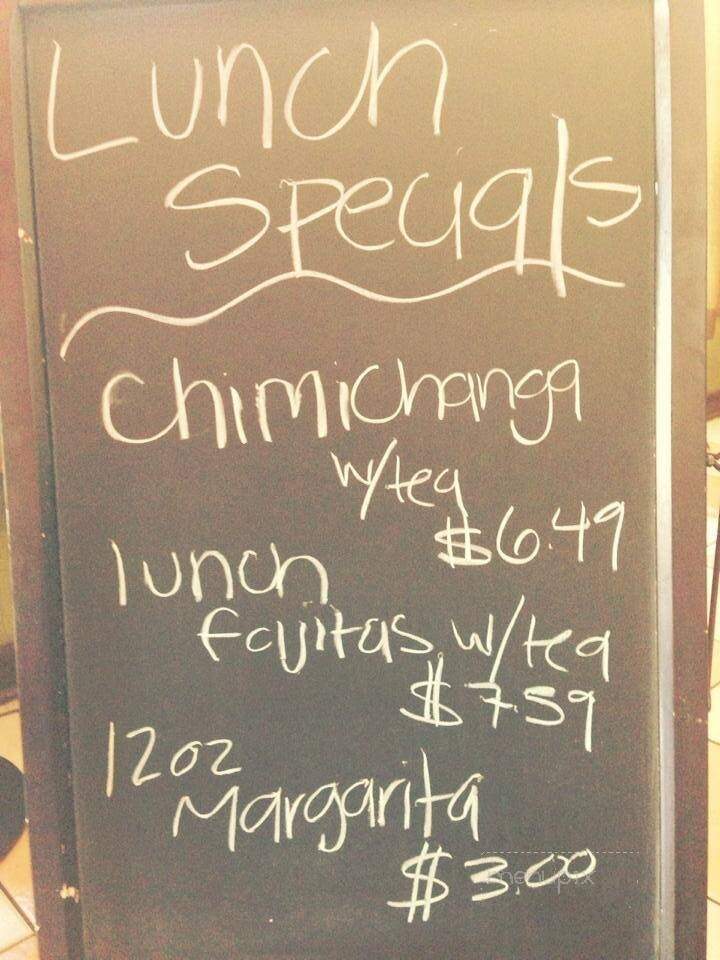 Lunch
Specials
Chimichanga
w/tea
$6.49
lunch
fajitas w/tea
$7.59
12oz
Margarita
$3.00
menupix